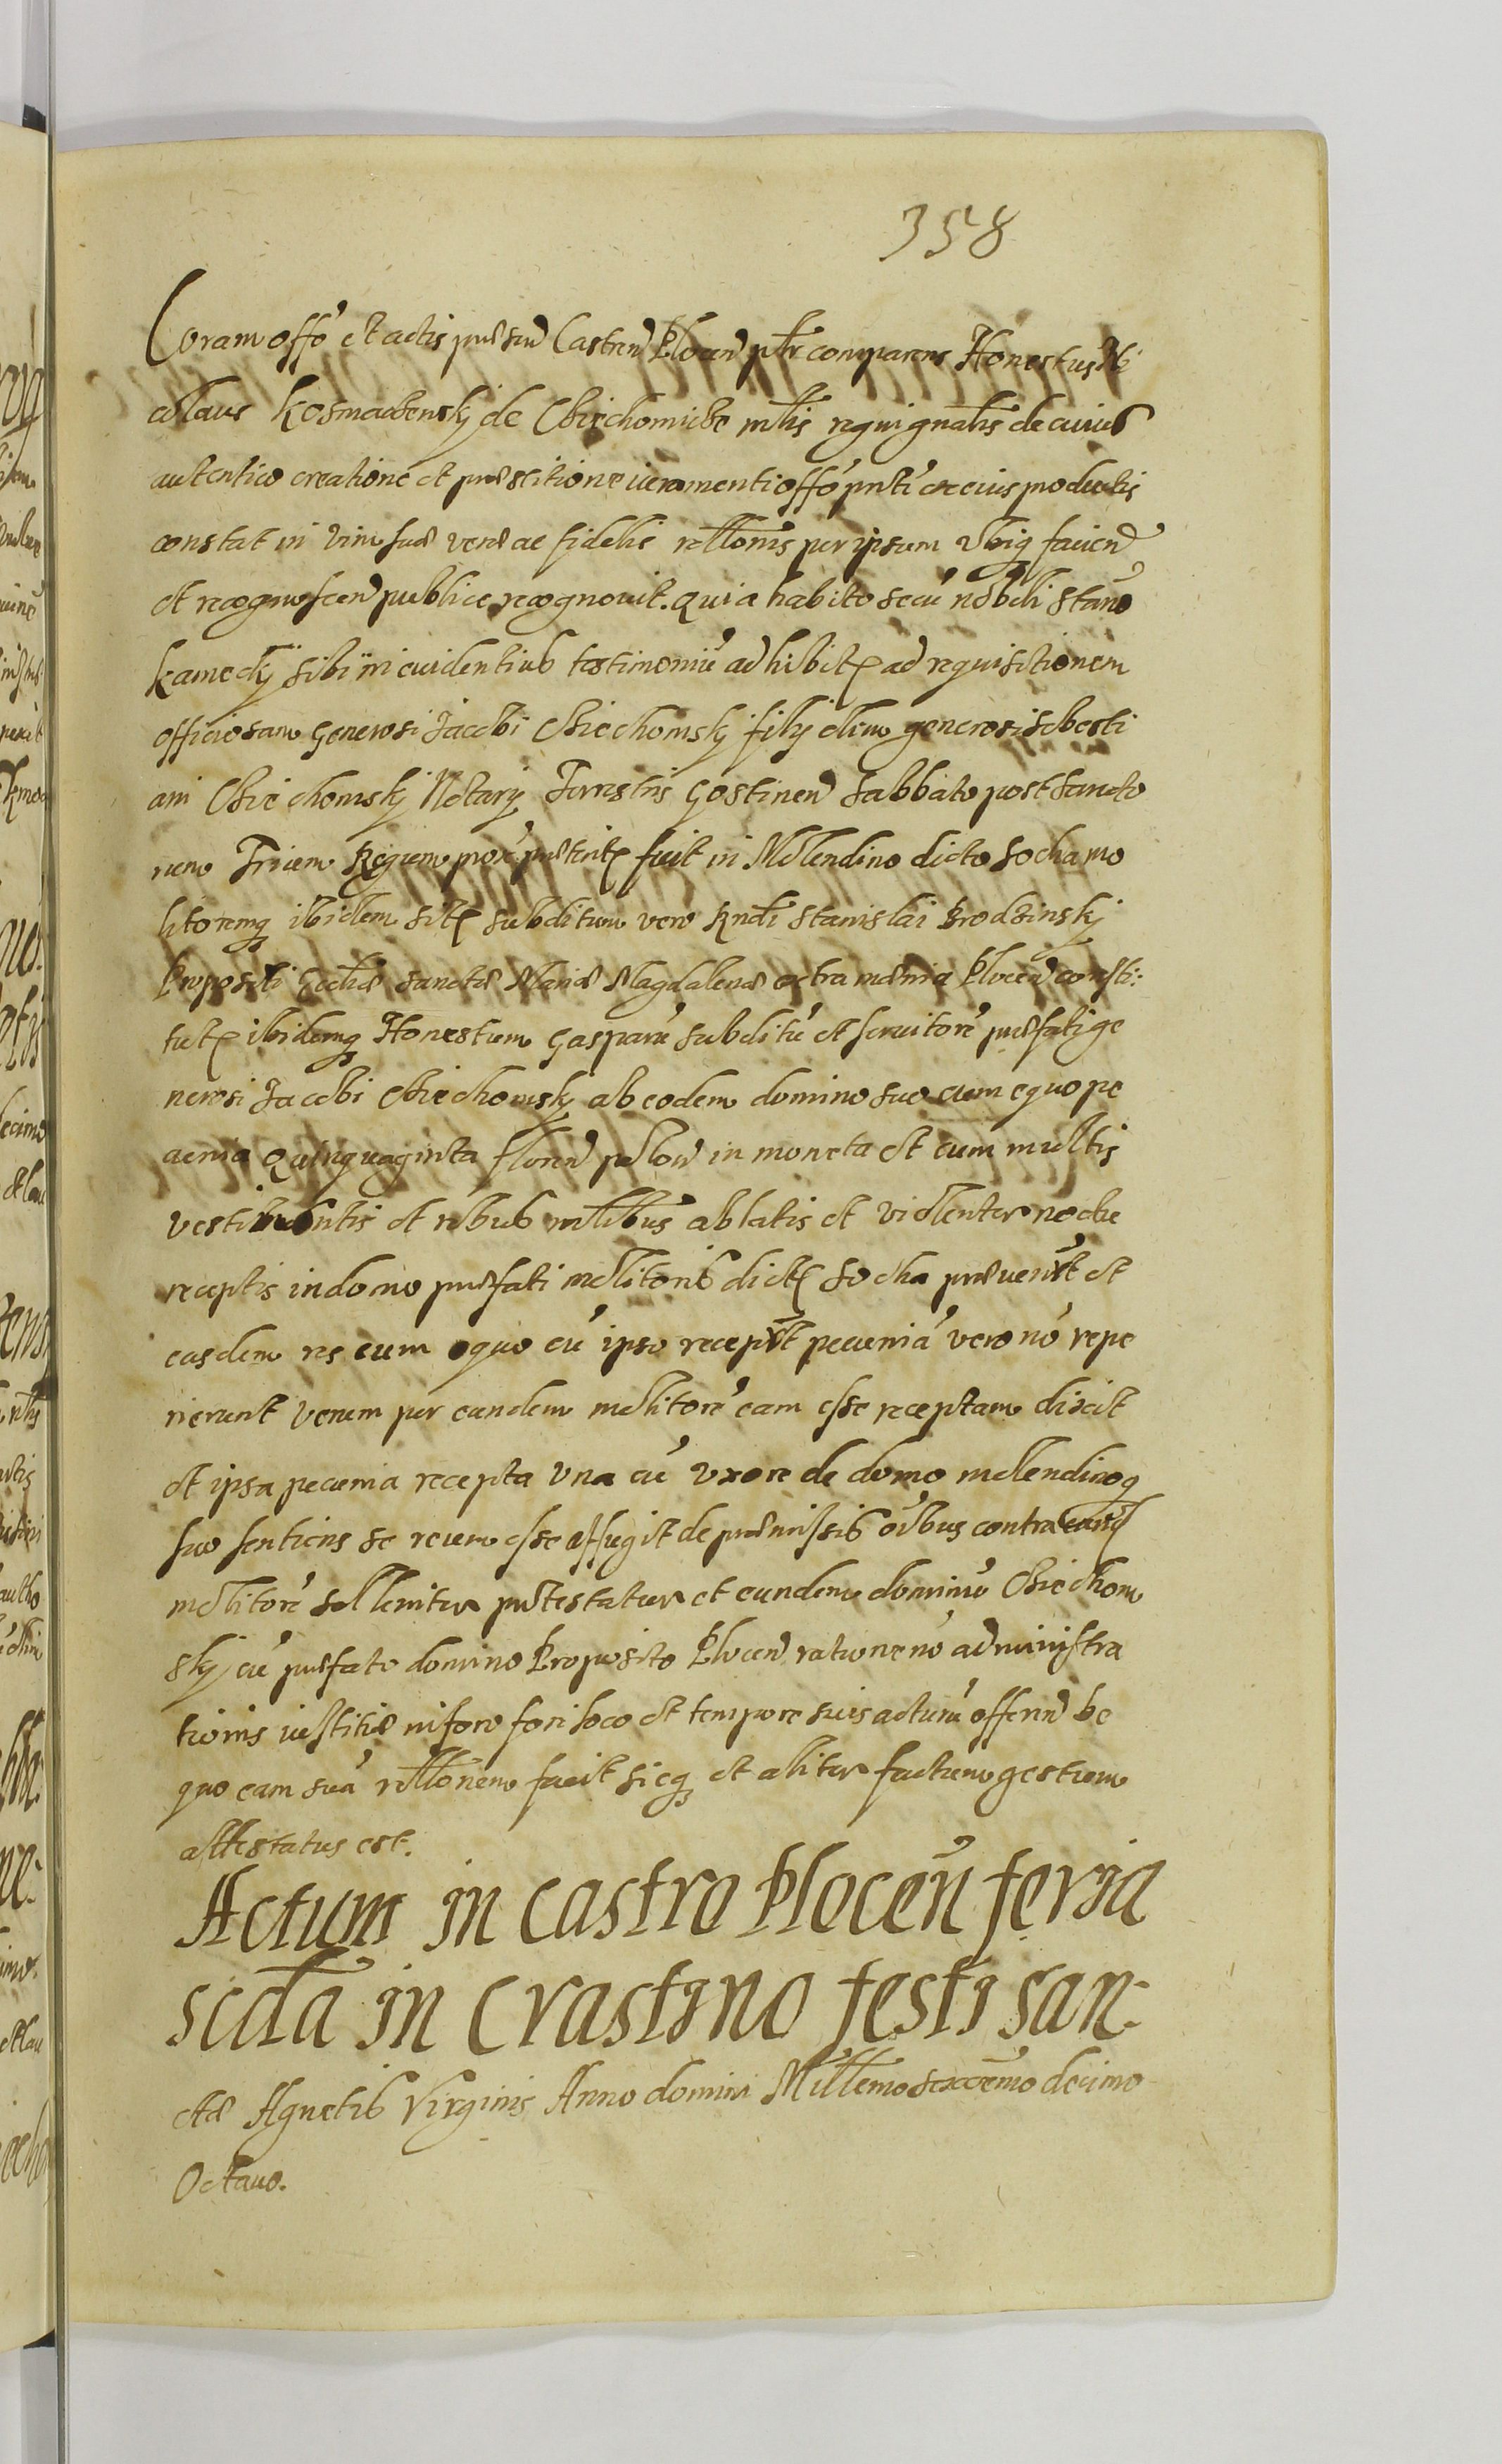 358
Coram offo et actis præsen Castren Plocen pltr comparens Honestus Ni
colaus Kosmaczensky de Ciechomicze mlis regni gnalis de cuius
autentico creatione et præstitione iuramenti offo pnti ex eius productis
constat in vim suæ veræ ac fidelis rellonis per ipsum ubiq faciend
et recognoscen publice recognovit. Quia habito secu nobili Stano
Kamecky sibi in evidentius testimoniu adhibito ad requisitionem
officiosam Generosi Jacobi Ciechomsky filÿ olim generosi Sebesti
ani Ciechomsky Notarÿ Terrestris Gostinen Sabbato post Sancto
rum Trium Regum prox præterito fuit in Molendino dicto Socha mo
litoremq ibidem sito subditum vero Rndi Stanislai Brodzinsky
Propositi Ecclīæ sanctæ Mariæ Magdalenæ extra mænia Plocen consti:
tuto ibidemq Honestum Gasparu subditu et servitore præfati ge
nerosi Jacobi Ciechomsky ab eodem domino suo cum equo pe
cunia Quinquaginta floren polon in moneta et cum multis
vestimentis et rebus mltbus ablatis et violenter nocte
receptis in domo præfati molitoris dicto Socha prævenit et
easdem res cum equo cu ipso recepit pecuniā vero no repe
rierunt verum per eundem molitore eam esse receptam dixit
et ipsa pecunia recepta una cu uxore de domo molendinoq
suo sentiens se reum esse effugit de præmissis oībus contra eundē
molitore sollenniter protestatur et eundem dominu Ciechom
sky cu præfato domino Proposito Plocen ratione no administra
tionis iustitiæ in foro fori loco et tempore suis acturu offeren de
quo eam suā rellonem facit sicq et aliter factum gestum
attestatus est.
Actum in Castro Plocen feria
scda in Crastino festi san-
ctæ Agnetis Virginis Anno domini Millemo sexcēmo decimo
Octavo.